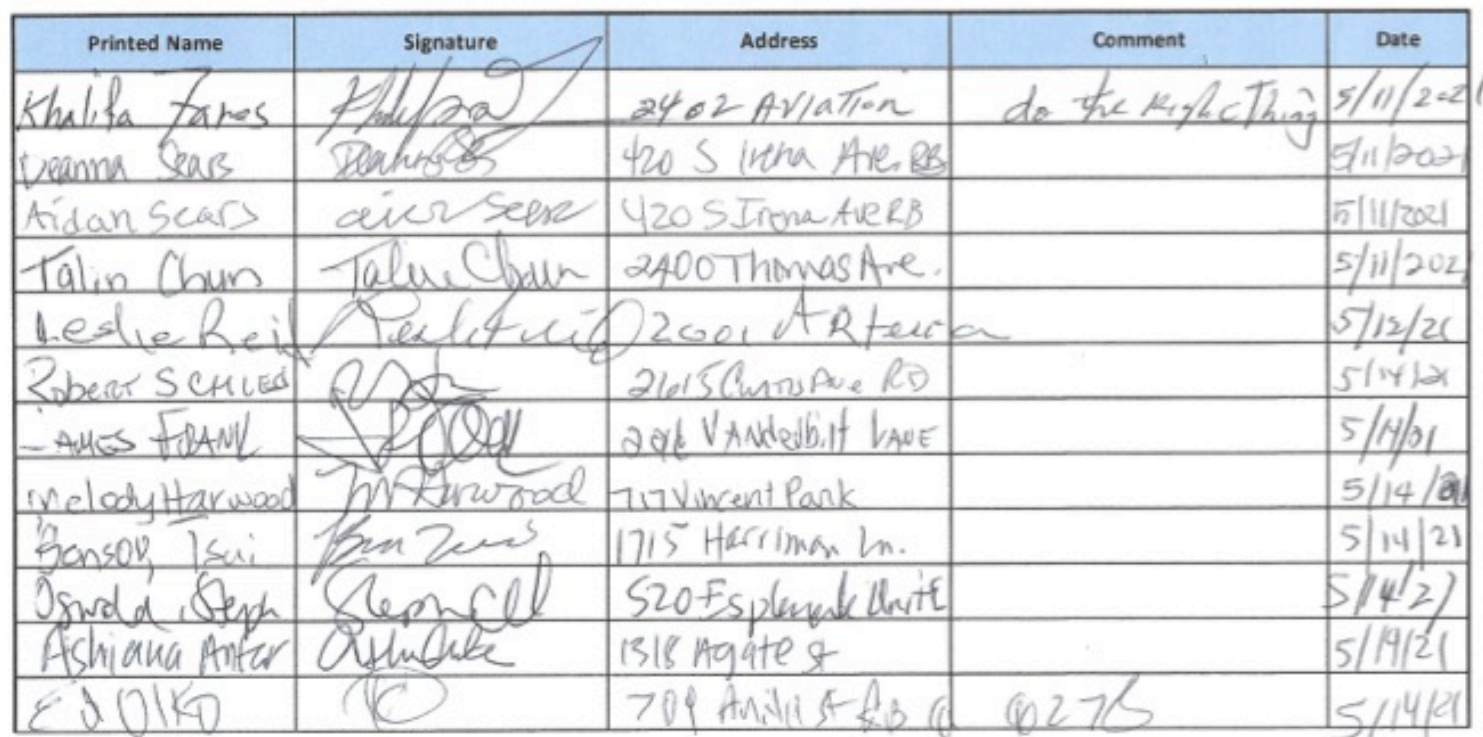 Printed Name Signature Address Comment Date
Khalifa Fares 2402 AVIATION do the Right Thing 5/11/2021
Deanna Sears 420 S Irena Ave. RB 5/11/2021
Aidan Sears 420 S Irena Ave RB 5/11/2021
Talin Chun Talin Chun 2400 Thomas Ave. 5/11/202
Leslie Reid 2001 ARtesia 5/12/21
Robert SCHLEG 2615 Curtis Ave RB 5/14/21
AMES FRANK VANderbilt LANE 5/14/21
Melody Harwood M Harwood 717 Vincent Park 5/14/21
Benson Tsui 1715 Harriman Ln. 5/14/21
Oswald, Steph 520 Esplanade Unit E 5/14/21
Ashiana Antar 1318 Agate St 5/14/21
709 St RB 90275 5/14/21